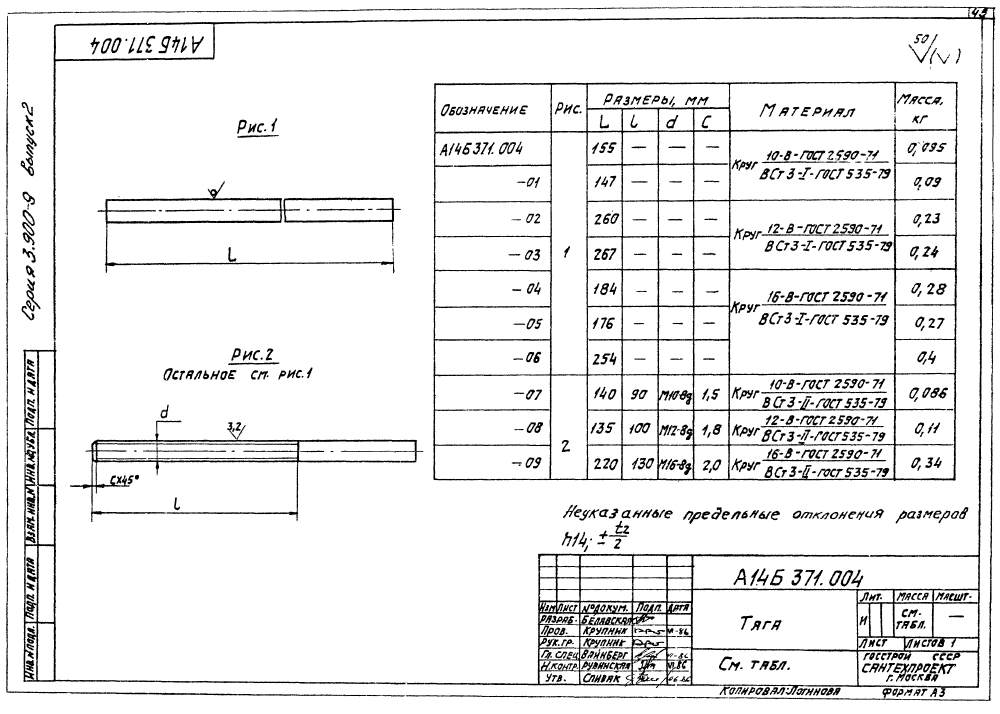 43
А14Б 371.004
50/ (√)
Серия 3.900-9 выпуск 2
Рис.1
L
Рис.2
Остальное см. рис.1
d
3,2
c×45°
l
Обозначение Рис. Размеры, мм Материал Масса, кг
L l d c
А14Б371.004 1 155 — — — Круг 10-В-ГОСТ 2590-71 / ВСт3-I-ГОСТ 535-79 0,095
-01 147 — — — 0,09
-02 260 — — — Круг 12-В-ГОСТ 2590-71 / ВСт3-I-ГОСТ 535-79 0,23
-03 267 — — — 0,24
-04 184 — — — Круг 16-В-ГОСТ 2590-71 / ВСт3-I-ГОСТ 535-79 0,28
-05 176 — — — 0,27
-06 254 — — — 0,4
-07 2 140 90 М10-8g 1,5 Круг 10-В-ГОСТ 2590-71 / ВСт3-II-ГОСТ 535-79 0,086
-08 135 100 М12-8g 1,8 Круг 12-В-ГОСТ 2590-71 / ВСт3-II-ГОСТ 535-79 0,11
-09 220 130 М16-8g 2,0 Круг 16-В-ГОСТ 2590-71 / ВСт3-II-ГОСТ 535-79 0,34
Неуказанные предельные отклонения размеров
h14; ± t2/2
А14Б 371.004
Изм Лист № докум. Подп. Дата
Разраб. Белавская
Пров. Крупник
Рук.гр. Крупник
Гл. спец. Вайнберг
Н.контр. Рувинская
Утв. Спивак
Тяга
См. табл.
Лит. Масса Масшт.
И см. табл. —
Лист Листов 1
Госстрой СССР
Сантехпроект
г. Москва
Копировал: Логинова Формат А3
Инв.№ подл. Подп. и дата Взам. инв.№ Инв.№ дубл. Подп. и дата